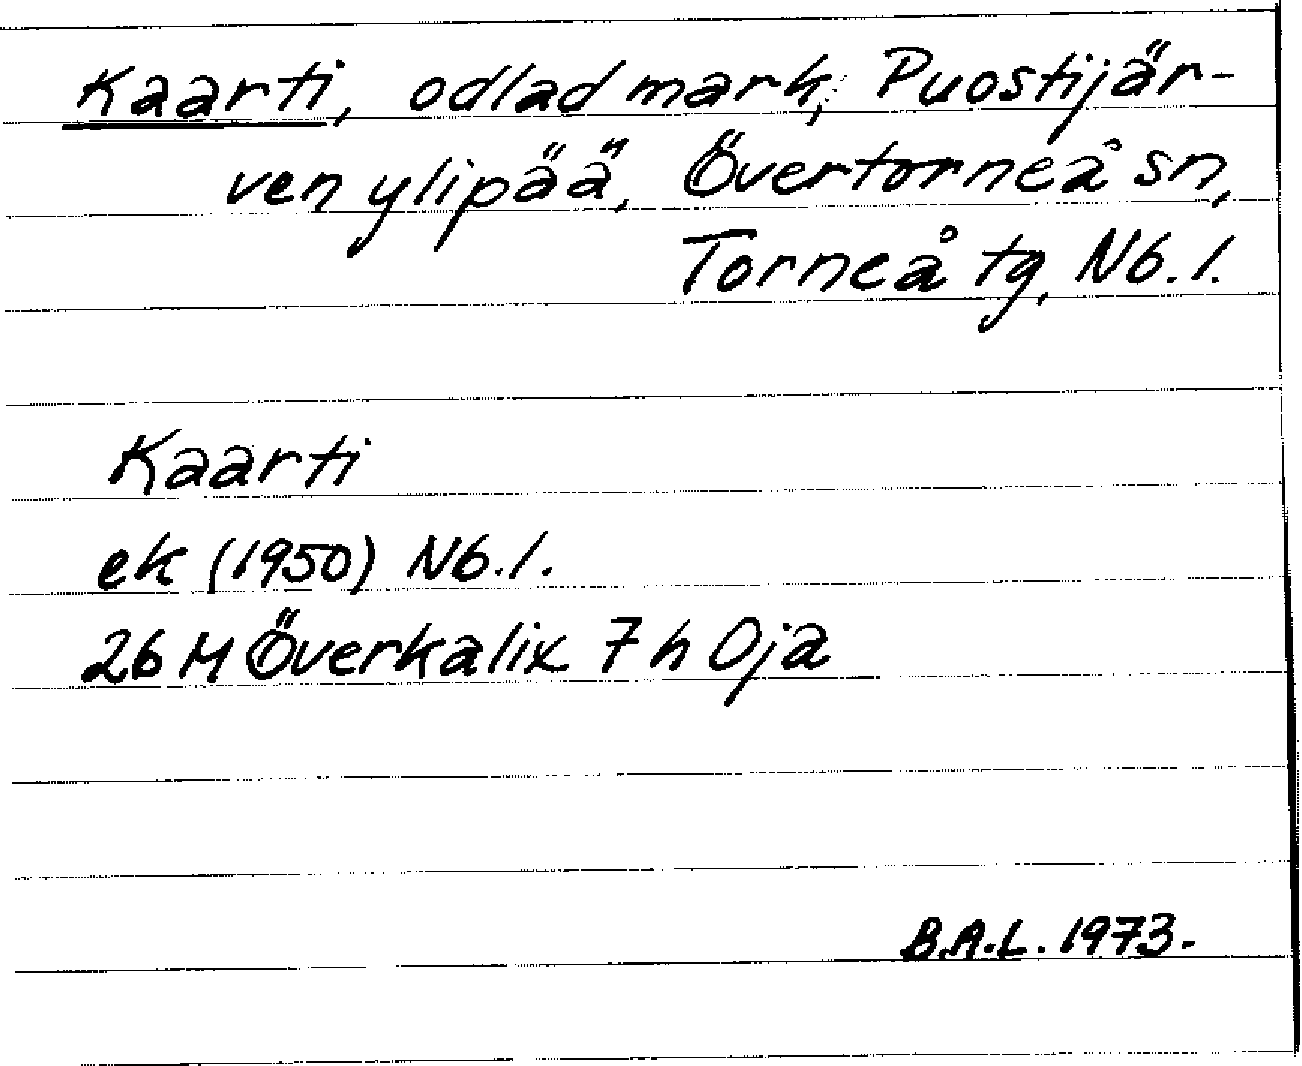 Kaarti, odlad mark, Puostijär-
ven ylipää, Övertorneå sn,
Torneå tg, Nb. l.
Kaarti
ek (1950) Nb. l.
26 M Överkalix 7 h Oja
B.A.L. 1973.